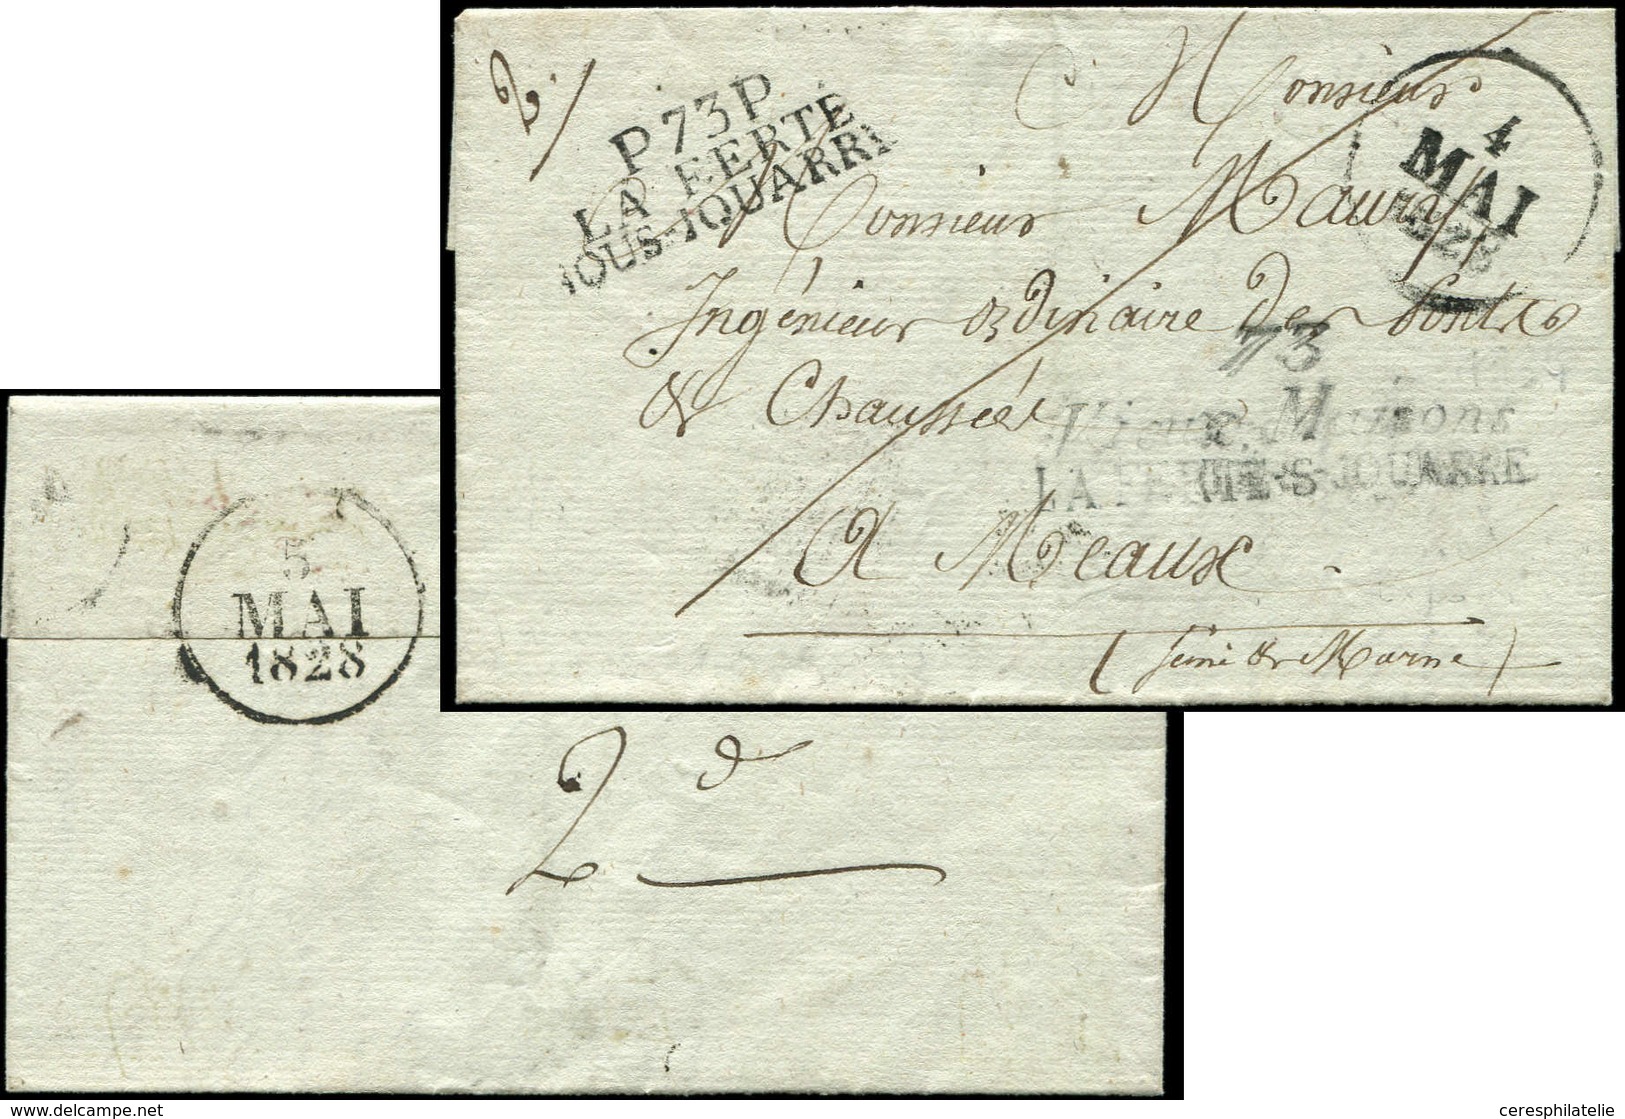 2/
P73P
LA FERTE
SOUS-JOUARRE
4
MAI
1828
Monsieur
Monsieur Maury
Ingénieur ordinaire des Ponts
& Chaussées
73
Vieux-Maisons
LA FERTE-S-JOUARRE
A Meaux
(Seine & Marne)
5
MAI
1828
2 d
www.delcampe.net
ceresphilatelie